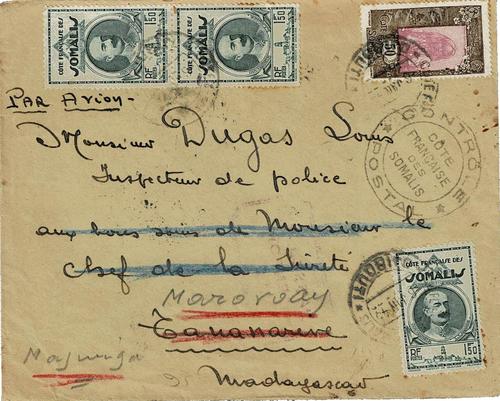 CÔTE FRANÇAISE DES
SOMALIS
1F50
RF
POSTES
CÔTE FRANÇAISE DES
SOMALIS
1F50
RF
POSTES
50
PAR AVION-
Monsieur Dugas Louis
Inspecteur de police
aux bons soins de Monsieur le
Chef de la Sûreté
Marovoay
Tananarive
Majunga
Madagascar
CONTRÔLE
POSTAL
CÔTE
FRANÇAISE
DES
SOMALIS
DJIBOUTI
CÔTE FRANÇAISE DES
SOMALIS
RF
POSTES
1F50